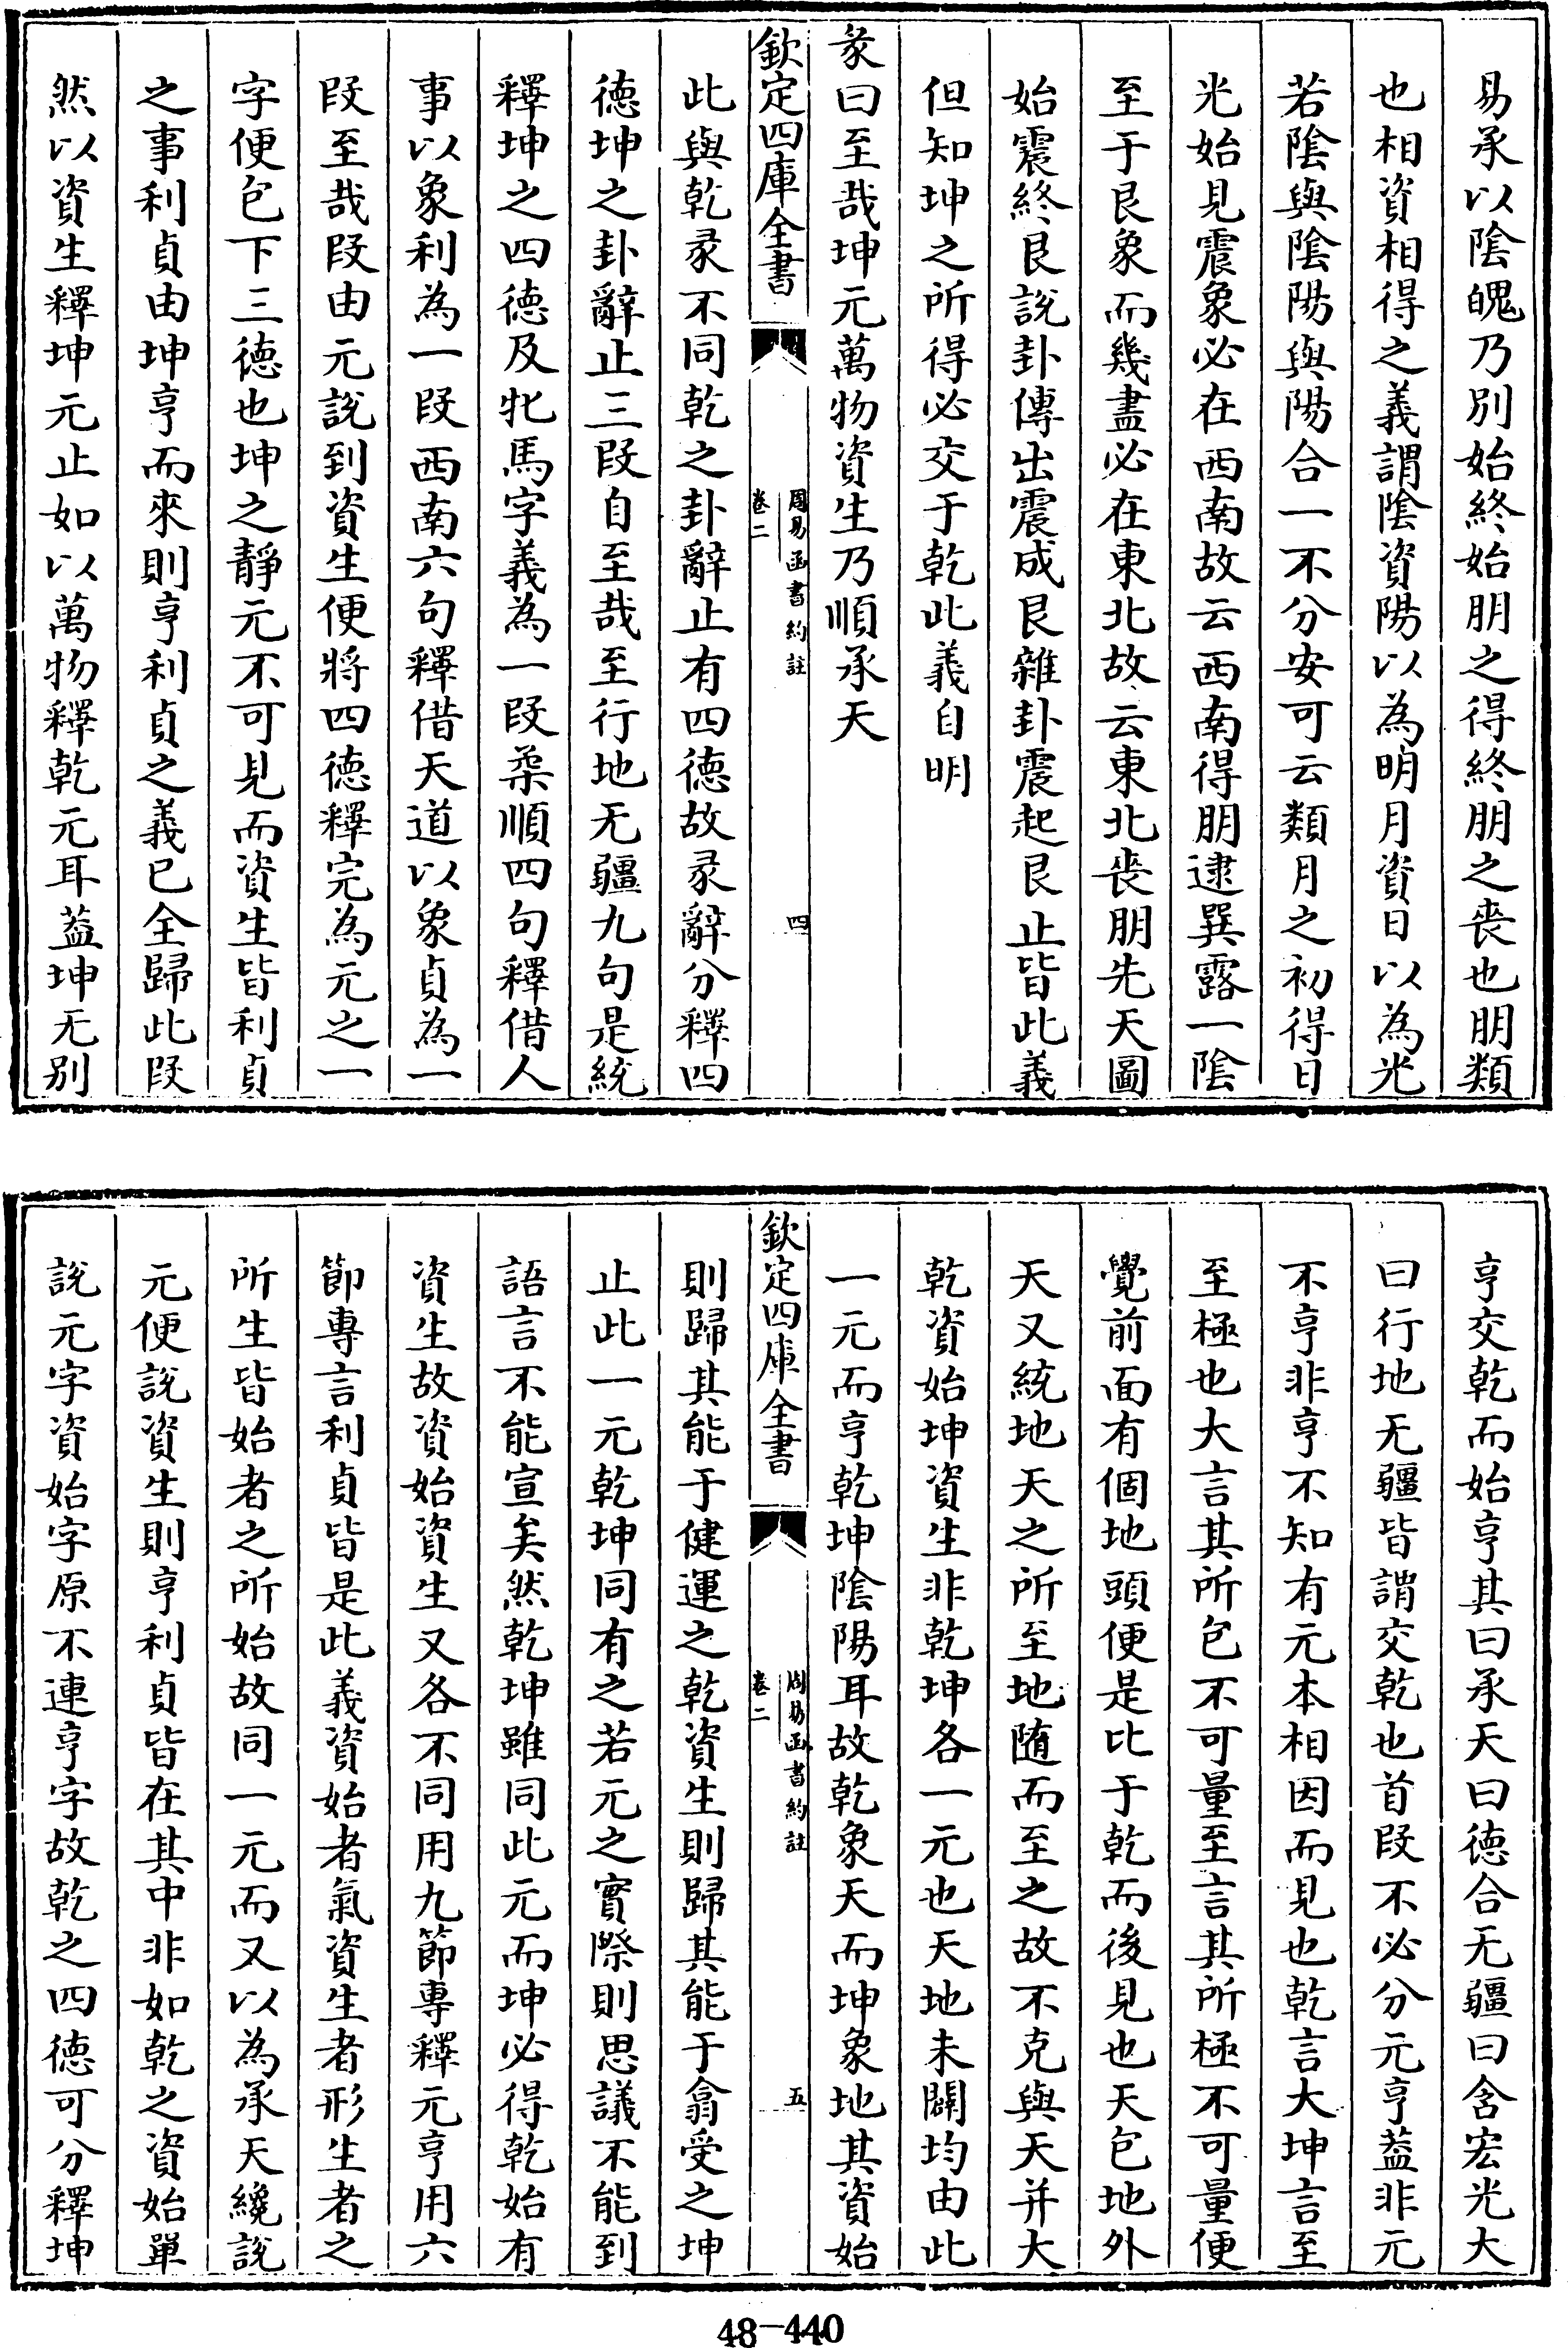 易承以陰魄乃別始終始朋之得終朋之喪也朋類
也相資相得之義謂陰資陽以為明月資日以為光
若陰與陰陽與陽合一不分安可云類月之初得日
光始見震象必在西南故云西南得朋逮巽露一陰
至于艮象而幾盡必在東北故云東北喪朋先天圖
始震終艮說卦傳出震成艮雜卦震起艮止皆此義
但知坤之所得必交于乾此義自明
彖曰至哉坤元萬物資生乃順承天
欽定四庫全書
周易函書約註
卷二
四
此與乾彖不同乾之卦辭止有四德故彖辭分釋四
德坤之卦辭止三段自至哉至行地无疆九句是統
釋坤之四德及牝馬字義為一段柔順四句釋借人
事以象利為一段西南六句釋借天道以象貞為一
段至哉段由元說到資生便將四德釋完為元之一
字便包下三德也坤之靜元不可見而資生皆利貞
之事利貞由坤亨而來則亨利貞之義已全歸此段
然以資生釋坤元止如以萬物釋乾元耳葢坤无別
亨交乾而始亨其曰承天曰德合无疆曰含宏光大
曰行地无疆皆謂交乾也首段不必分元亨葢非元
不亨非亨不知有元本相因而見也乾言大坤言至
至極也大言其所包不可量至言其所極不可量便
覺前面有個地頭便是比于乾而後見也天包地外
天又統地天之所至地隨而至之故不克與天并大
乾資始坤資生非乾坤各一元也天地未闢均由此
一元而亨乾坤陰陽耳故乾象天而坤象地其資始
欽定四庫全書
周易函書約註
卷二
五
則歸其能于健運之乾資生則歸其能于翕受之坤
止此一元乾坤同有之若元之實際則思議不能到
語言不能宣矣然乾坤雖同此元而坤必得乾始有
資生故資始資生又各不同用九節專釋元亨用六
節專言利貞皆是此義資始者氣資生者形生者之
所生皆始者之所始故同一元而又以為承天纔說
元便說資生則亨利貞皆在其中非如乾之資始單
說元字資始字原不連亨字故乾之四德可分釋坤
48-440